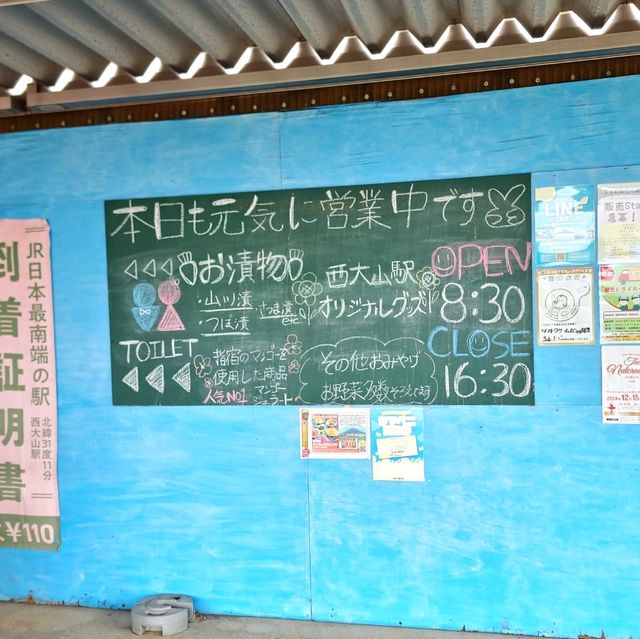 本日も元気に営業中です
お漬物
・山川漬
・つぼ漬
さつま漬
etc
TOILET
指宿のマンゴーを
使用した商品
人気No1
マンゴー
ジェラート
西大山駅
オリジナルグッズ
その他おみやげ
お野菜多数そろえてます
OPEN
8:30
CLOSE
16:30
JR日本最南端の駅
到着証明書
北緯31度11分
西大山駅
¥110
LINE
販売Sta
急募!
The
Nutcrac
2024 12.15